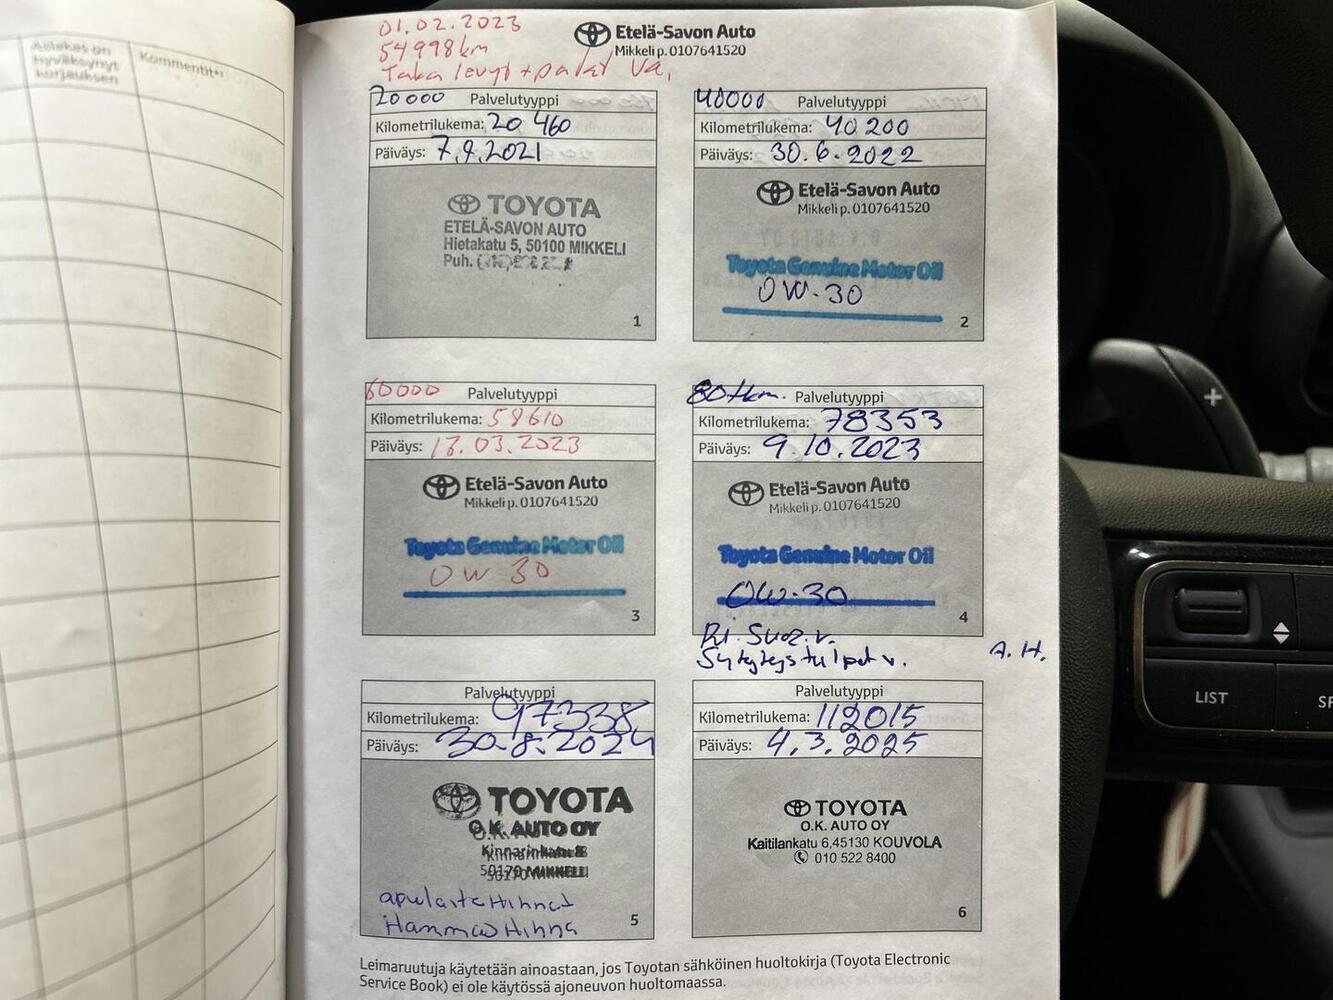 Asiakas on
hyväksynyt
korjauksen
Kommentit
01.02.2023
54998km
Taka levyt + palat va.
Etelä-Savon Auto
Mikkeli p. 0107641520
20000 Palvelutyyppi
Kilometrilukema: 20 460
Päiväys: 7.9.2021
TOYOTA
ETELÄ-SAVON AUTO
Hietakatu 5, 50100 MIKKELI
Puh.
1
40000 Palvelutyyppi
Kilometrilukema: 40 200
Päiväys: 30.6.2022
Etelä-Savon Auto
Mikkeli p. 0107641520
Toyota Genuine Motor Oil
0W-30
2
60000 Palvelutyyppi
Kilometrilukema: 58610
Päiväys: 17.03.2023
Etelä-Savon Auto
Mikkeli p. 0107641520
Toyota Genuine Motor Oil
0W 30
3
80tkm. Palvelutyyppi
Kilometrilukema: 78353
Päiväys: 9.10.2023
Etelä-Savon Auto
Mikkeli p. 0107641520
Toyota Genuine Motor Oil
0W-30
4
Ri. Suod. v.
Sytytystulpat v.
A.H.
Palvelutyyppi
Kilometrilukema: 97338
Päiväys: 30.8.2024
TOYOTA
O.K. AUTO OY
Kinnarinkatu 8
50170 MIKKELI
apulaitehihnat
Hammashihna
5
Palvelutyyppi
Kilometrilukema: 112015
Päiväys: 4.3.2025
TOYOTA
O.K. AUTO OY
Kaitilankatu 6,45130 KOUVOLA
010 522 8400
6
Leimaruutuja käytetään ainoastaan, jos Toyotan sähköinen huoltokirja (Toyota Electronic
Service Book) ei ole käytössä ajoneuvon huoltomaassa.
+
LIST